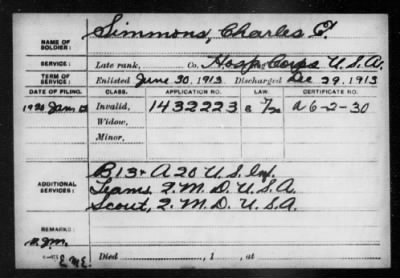 NAME OF SOLDIER: Simmons, Charles E.
SERVICE: Late rank, Co. Hosp. Corps U.S.A.
TERM OF SERVICE: Enlisted June 30, 1913. Discharged Dec 29, 1913
DATE OF FILING. CLASS. APPLICATION NO. LAW. CERTIFICATE NO.
Invalid, 1432223 A 6-2-30
Widow,
Minor,
ADDITIONAL SERVICES:
B 13 + A 20 U.S. Inf.
Teams, Q.M.D. U.S.A.
Scout, Q.M.D. U.S.A.
REMARKS:
Died , 1 , at